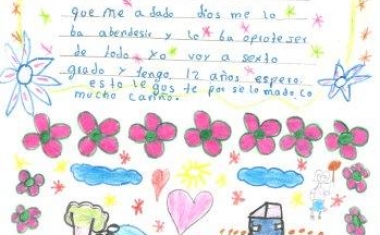 que me a dado dios me lo
ba abendesir y lo ba aproteJer
de todo yo voy a sexto
grado y tengo 12 años espero
esto le gus te por se lo mado, co
mucho cariño.